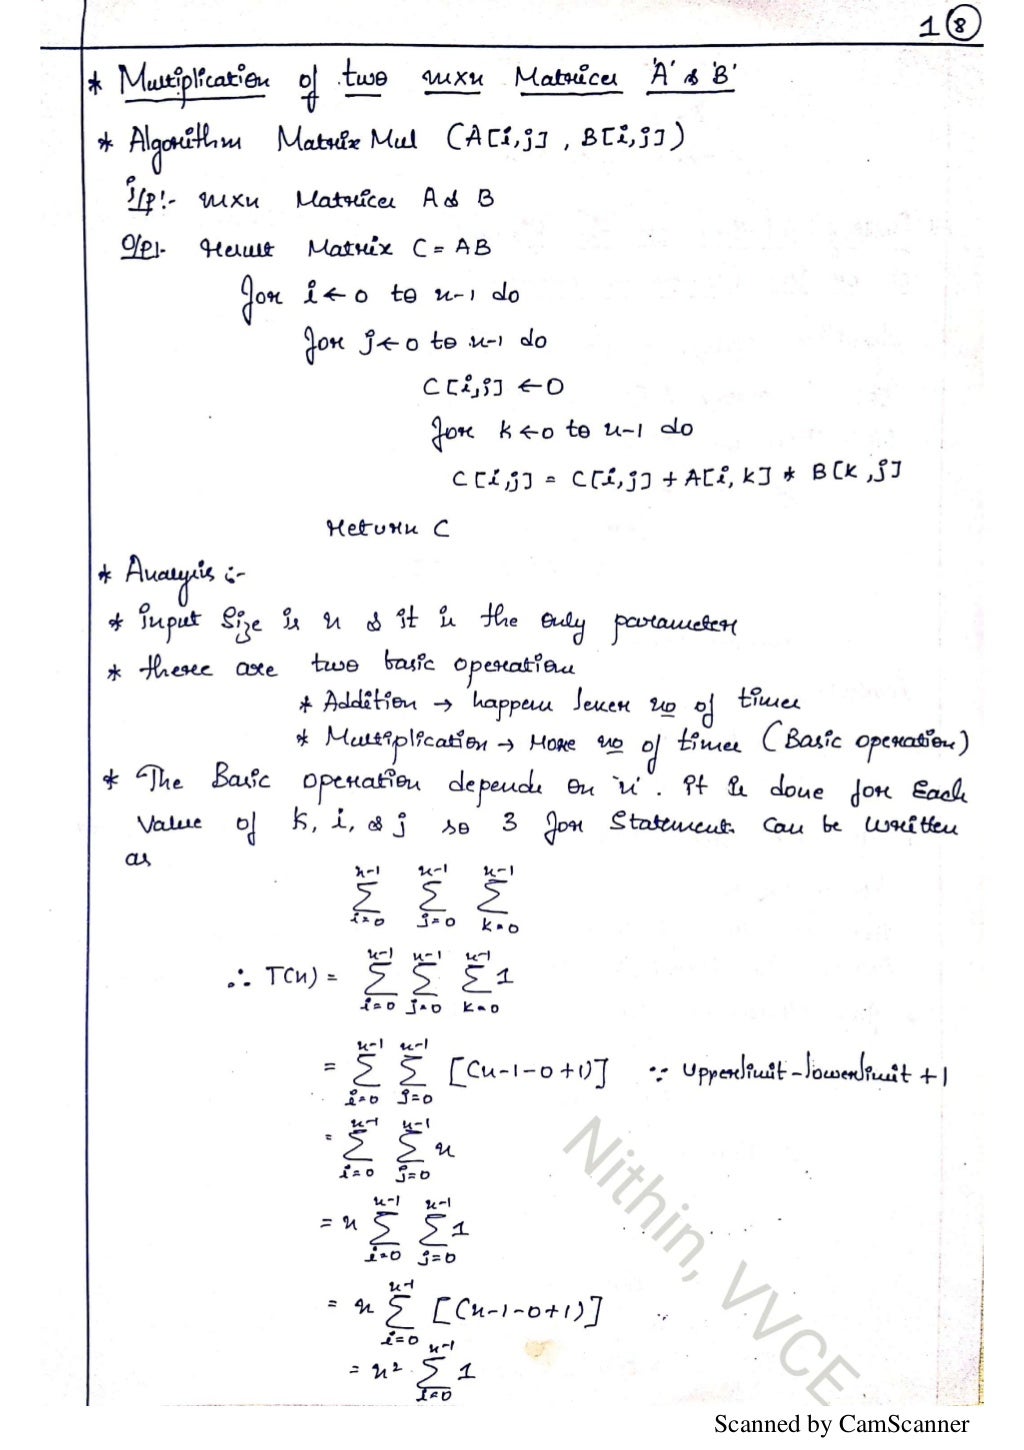 1 8
* Multiplication of two mxn Matrices 'A' & 'B'
* Algorithm Matrix Mul (A[i,j] , B[i,j])
i/p:- mxn Matrices A & B
O/p:- Result Matrix C = AB
for i ← 0 to n-1 do
for j ← 0 to n-1 do
C[i,j] ← 0
for k ← 0 to n-1 do
C[i,j] = C[i,j] + A[i, k] * B[k ,j]
Return C
* Analysis :-
* input Size is n & it is the only parameter
* there are two basic operations
* Addition → happens lesser no of times
* Multiplication → More no of times (Basic operation)
* The Basic operation depends on 'n'. it is done for Each
Value of k, i, & j so 3 for Statements can be written
as
n-1 n-1 n-1
∑ ∑ ∑
i=0 j=0 k=0
n-1 n-1 n-1
∴ T(n) = ∑ ∑ ∑ 1
i=0 j=0 k=0
n-1 n-1
= ∑ ∑ [(n-1-0+1)] ∵ Upperlimit - lowerlimit + 1
i=0 j=0
n-1 n-1
= ∑ ∑ n
i=0 j=0
n-1 n-1
= n ∑ ∑ 1
i=0 j=0
n-1
= n ∑ [(n-1-0+1)]
i=0
n-1
= n² ∑ 1
i=0
Nithin, VVCE
Scanned by CamScanner